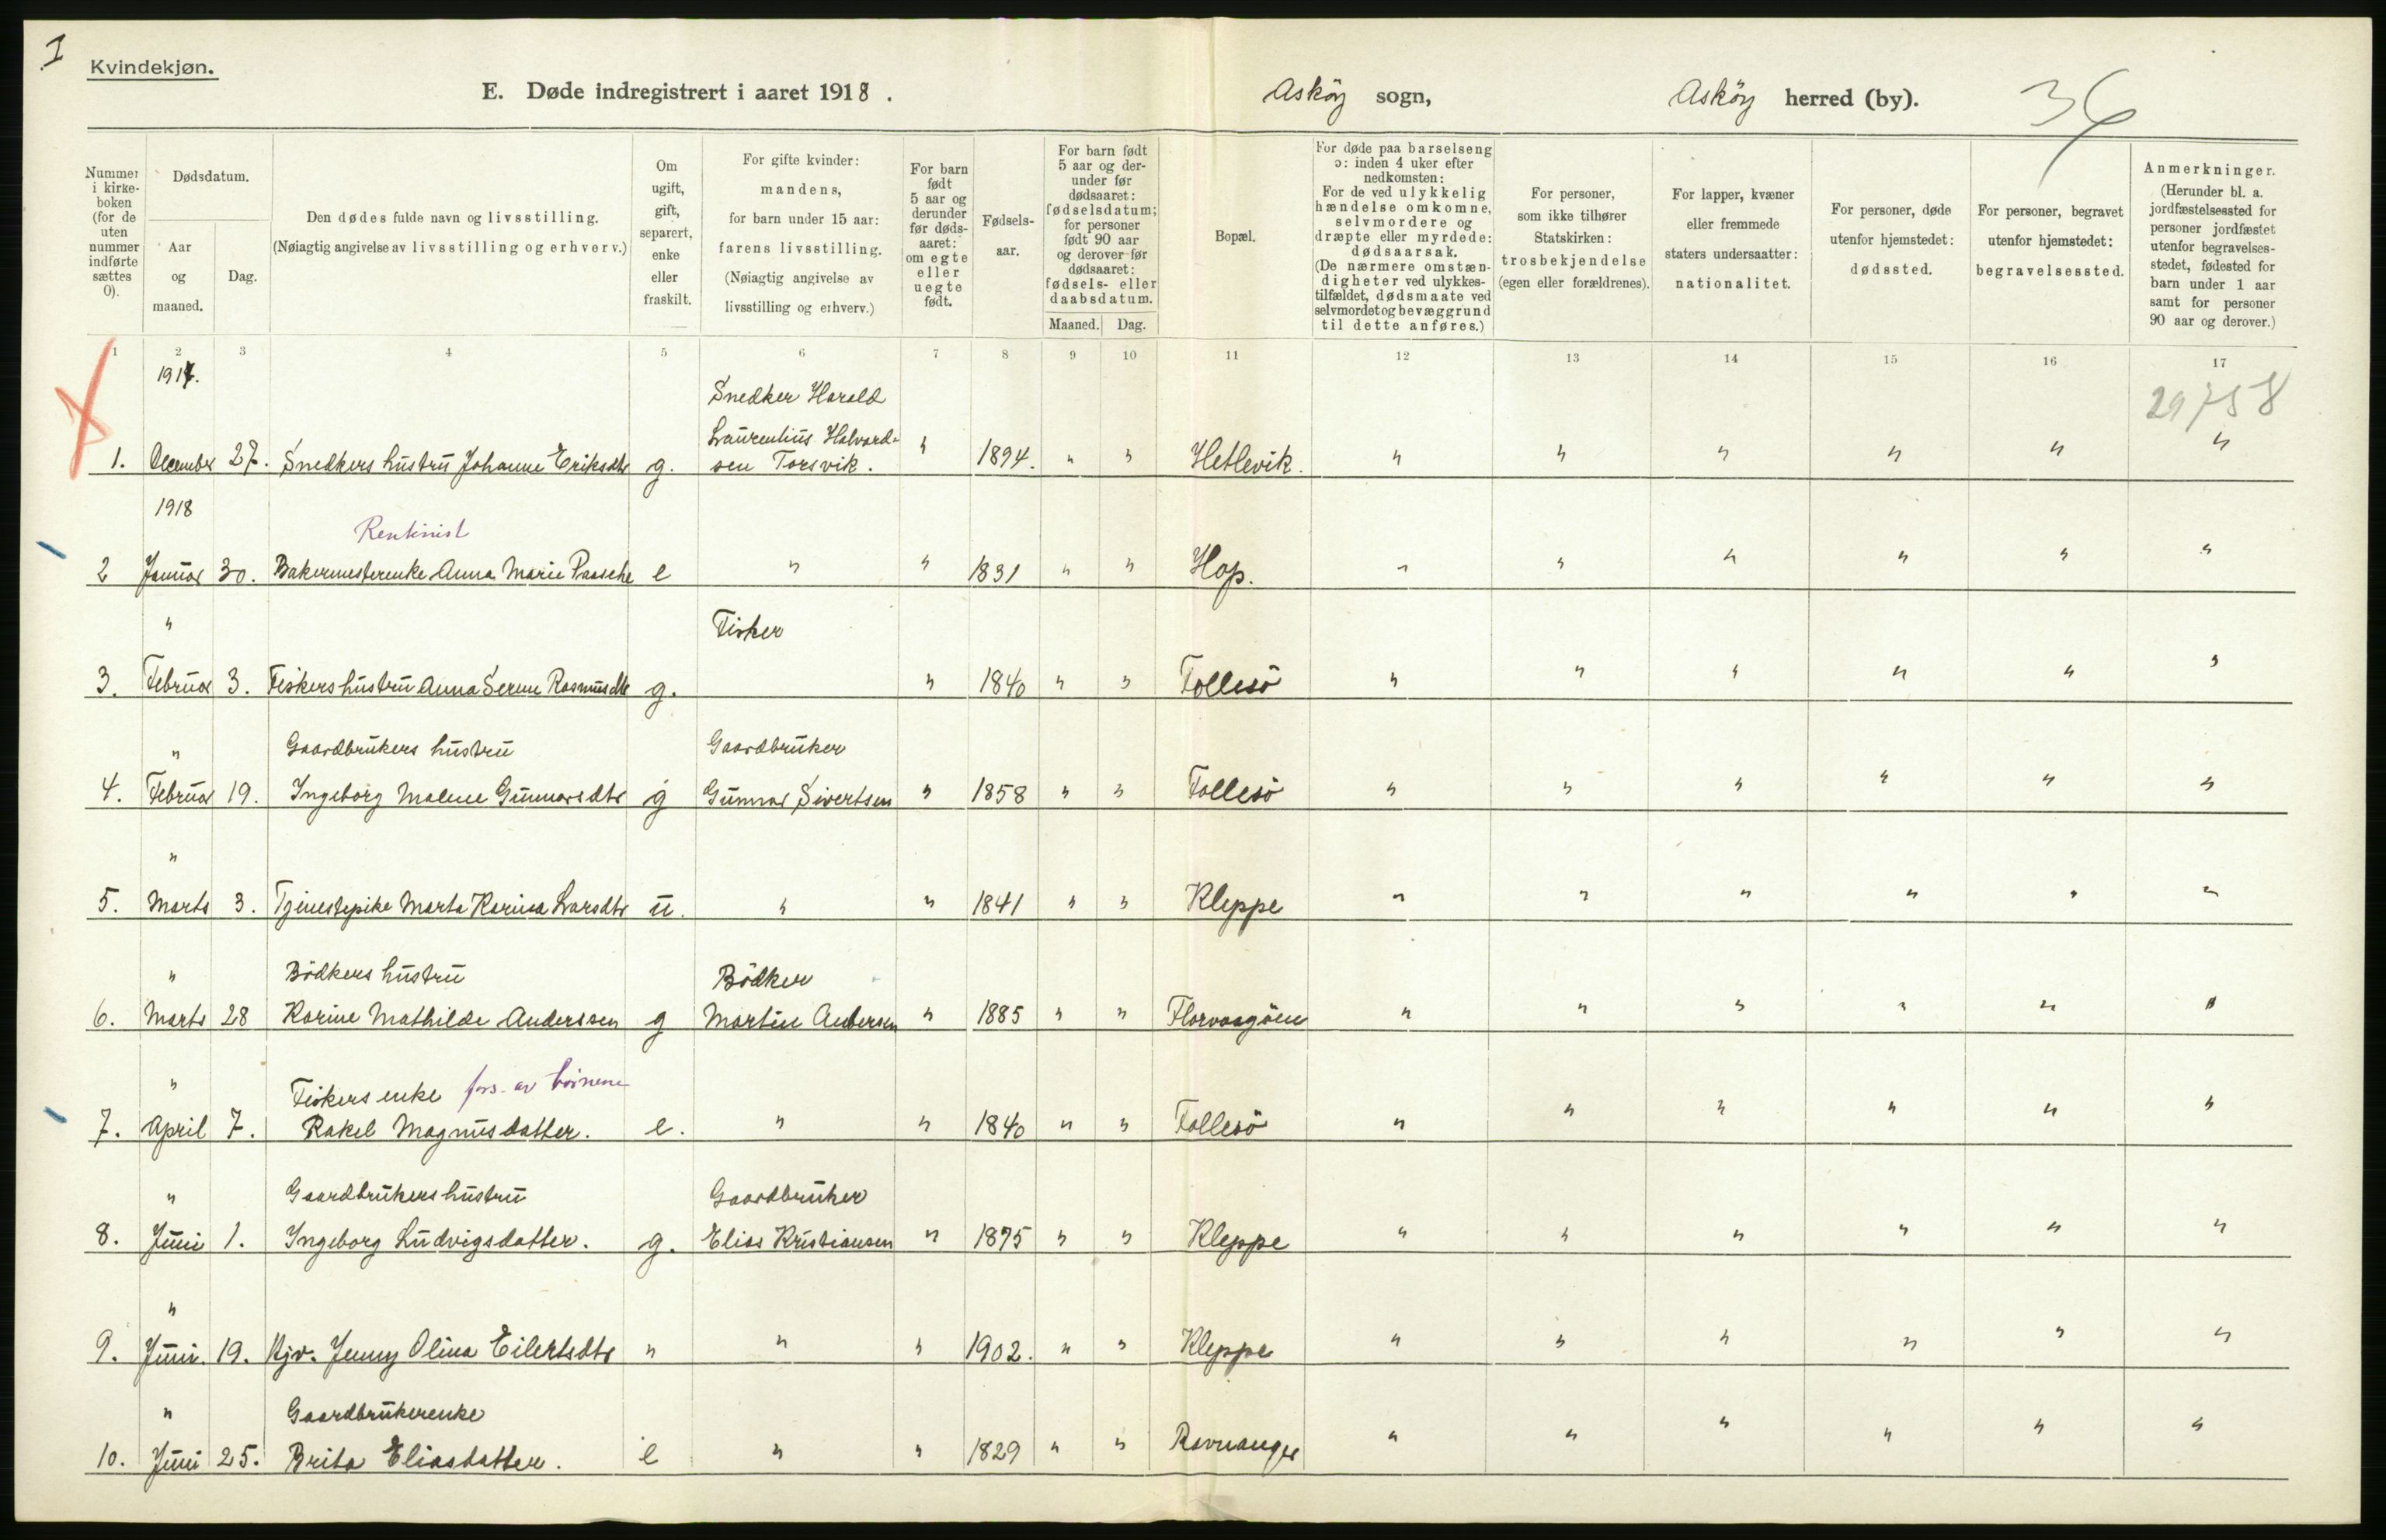 I
Kvindekjøn.
E. Døde indregistrert i aaret 1918.
Asköy sogn,
Asköy herred (by).
36
Nummer i kirkeboken (for de uten nummer indførte sættes 0).
Dødsdatum.
Aar og maaned.
Dag.
Den dødes fulde navn og livsstilling.
(Nøiagtig angivelse av livsstilling og erhverv.)
Om ugift, gift, separert, enke eller fraskilt.
For gifte kvinder: mandens, for barn under 15 aar: farens livsstilling. (Nøiagtig angivelse av livsstilling og erhverv.)
For barn født 5 aar og derunder før dødsaaret: om egte eller uegte født.
Fødselsaar.
For barn født 5 aar og derunder før dødsaaret: fødselsdatum; for personer født 90 aar og derover før dødsaaret: fødsels- eller daabsdatum.
Maaned.
Dag.
Bopæl.
For døde paa barselseng ɔ: inden 4 uker efter nedkomsten: For de ved ulykkelig hændelse omkomne, selvmordere og dræpte eller myrdede: dødsaarsak. (De nærmere omstændigheter ved ulykkestilfældet, dødsmaate ved selvmordet og bevæggrund til dette anføres.)
For personer, som ikke tilhører Statskirken: trosbekjendelse (egen eller forældrenes).
For lapper, kvæner eller fremmede staters undersaatter: nationalitet.
For personer, døde utenfor hjemstedet: dødssted.
For personer, begravet utenfor hjemstedet: begravelsessted.
Anmerkninger. (Herunder bl. a. jordfæstelsessted for personer jordfæstet utenfor begravelsesstedet, fødested for barn under 1 aar samt for personer 90 aar og derover.)
1 2 3 4 5 6 7 8 9 10 11 12 13 14 15 16 17
1917.
29758
Snedker Harald
Laurentius Halvard-
1. December 27. Snedkers hustru Johanne Eriksdtr g. sen Torsvik. " 1894. " " Hetlevik. " " " " " "
1918
Rentenist
2 Januar 30. Bakermesterenke Anna Marie Paasche e " " 1831 " " Hop. " " " " " "
" Fisker
3. Februar 3. Fiskers hustru Anna Serine Rasmusdtr g. " 1840 " " Follesö " " " " " "
" Gaardbrukers hustru Gaardbruker
4. Februar 19. Ingeborg Malene Gunnarsdtr g Gunnar Sivertsen " 1858 " " Follesö " " " " " "
"
5. Marts 3. Tjenestepike Marta Karina Larsdtr u. " " 1841 " " Kleppe " " " " " "
" Bödkers hustru Bödker
6. Marts 28 Karine Mathilde Anderssen g Martin Andersen " 1885 " " Florvaagöen " " " " " "
" Fiskers enke fors. av börnene
7. April 7. Rakel Magnusdatter. e. " " 1840 " " Follesö " " " " " "
" Gaardbrukers hustru Gaardbruker
8. Juni 1. Ingeborg Ludvigsdatter. g. Elias Kristiansen " 1875 " " Kleppe " " " " " "
"
9. Juni. 19. Kjv. Jenny Olina Eilertsdtr " " " 1902. " " Kleppe " " " " " "
" Gaardbrukerenke
10. Juni 25. Brita Eliasdatter. e " " 1829 " " Ravnanger " " " " " "